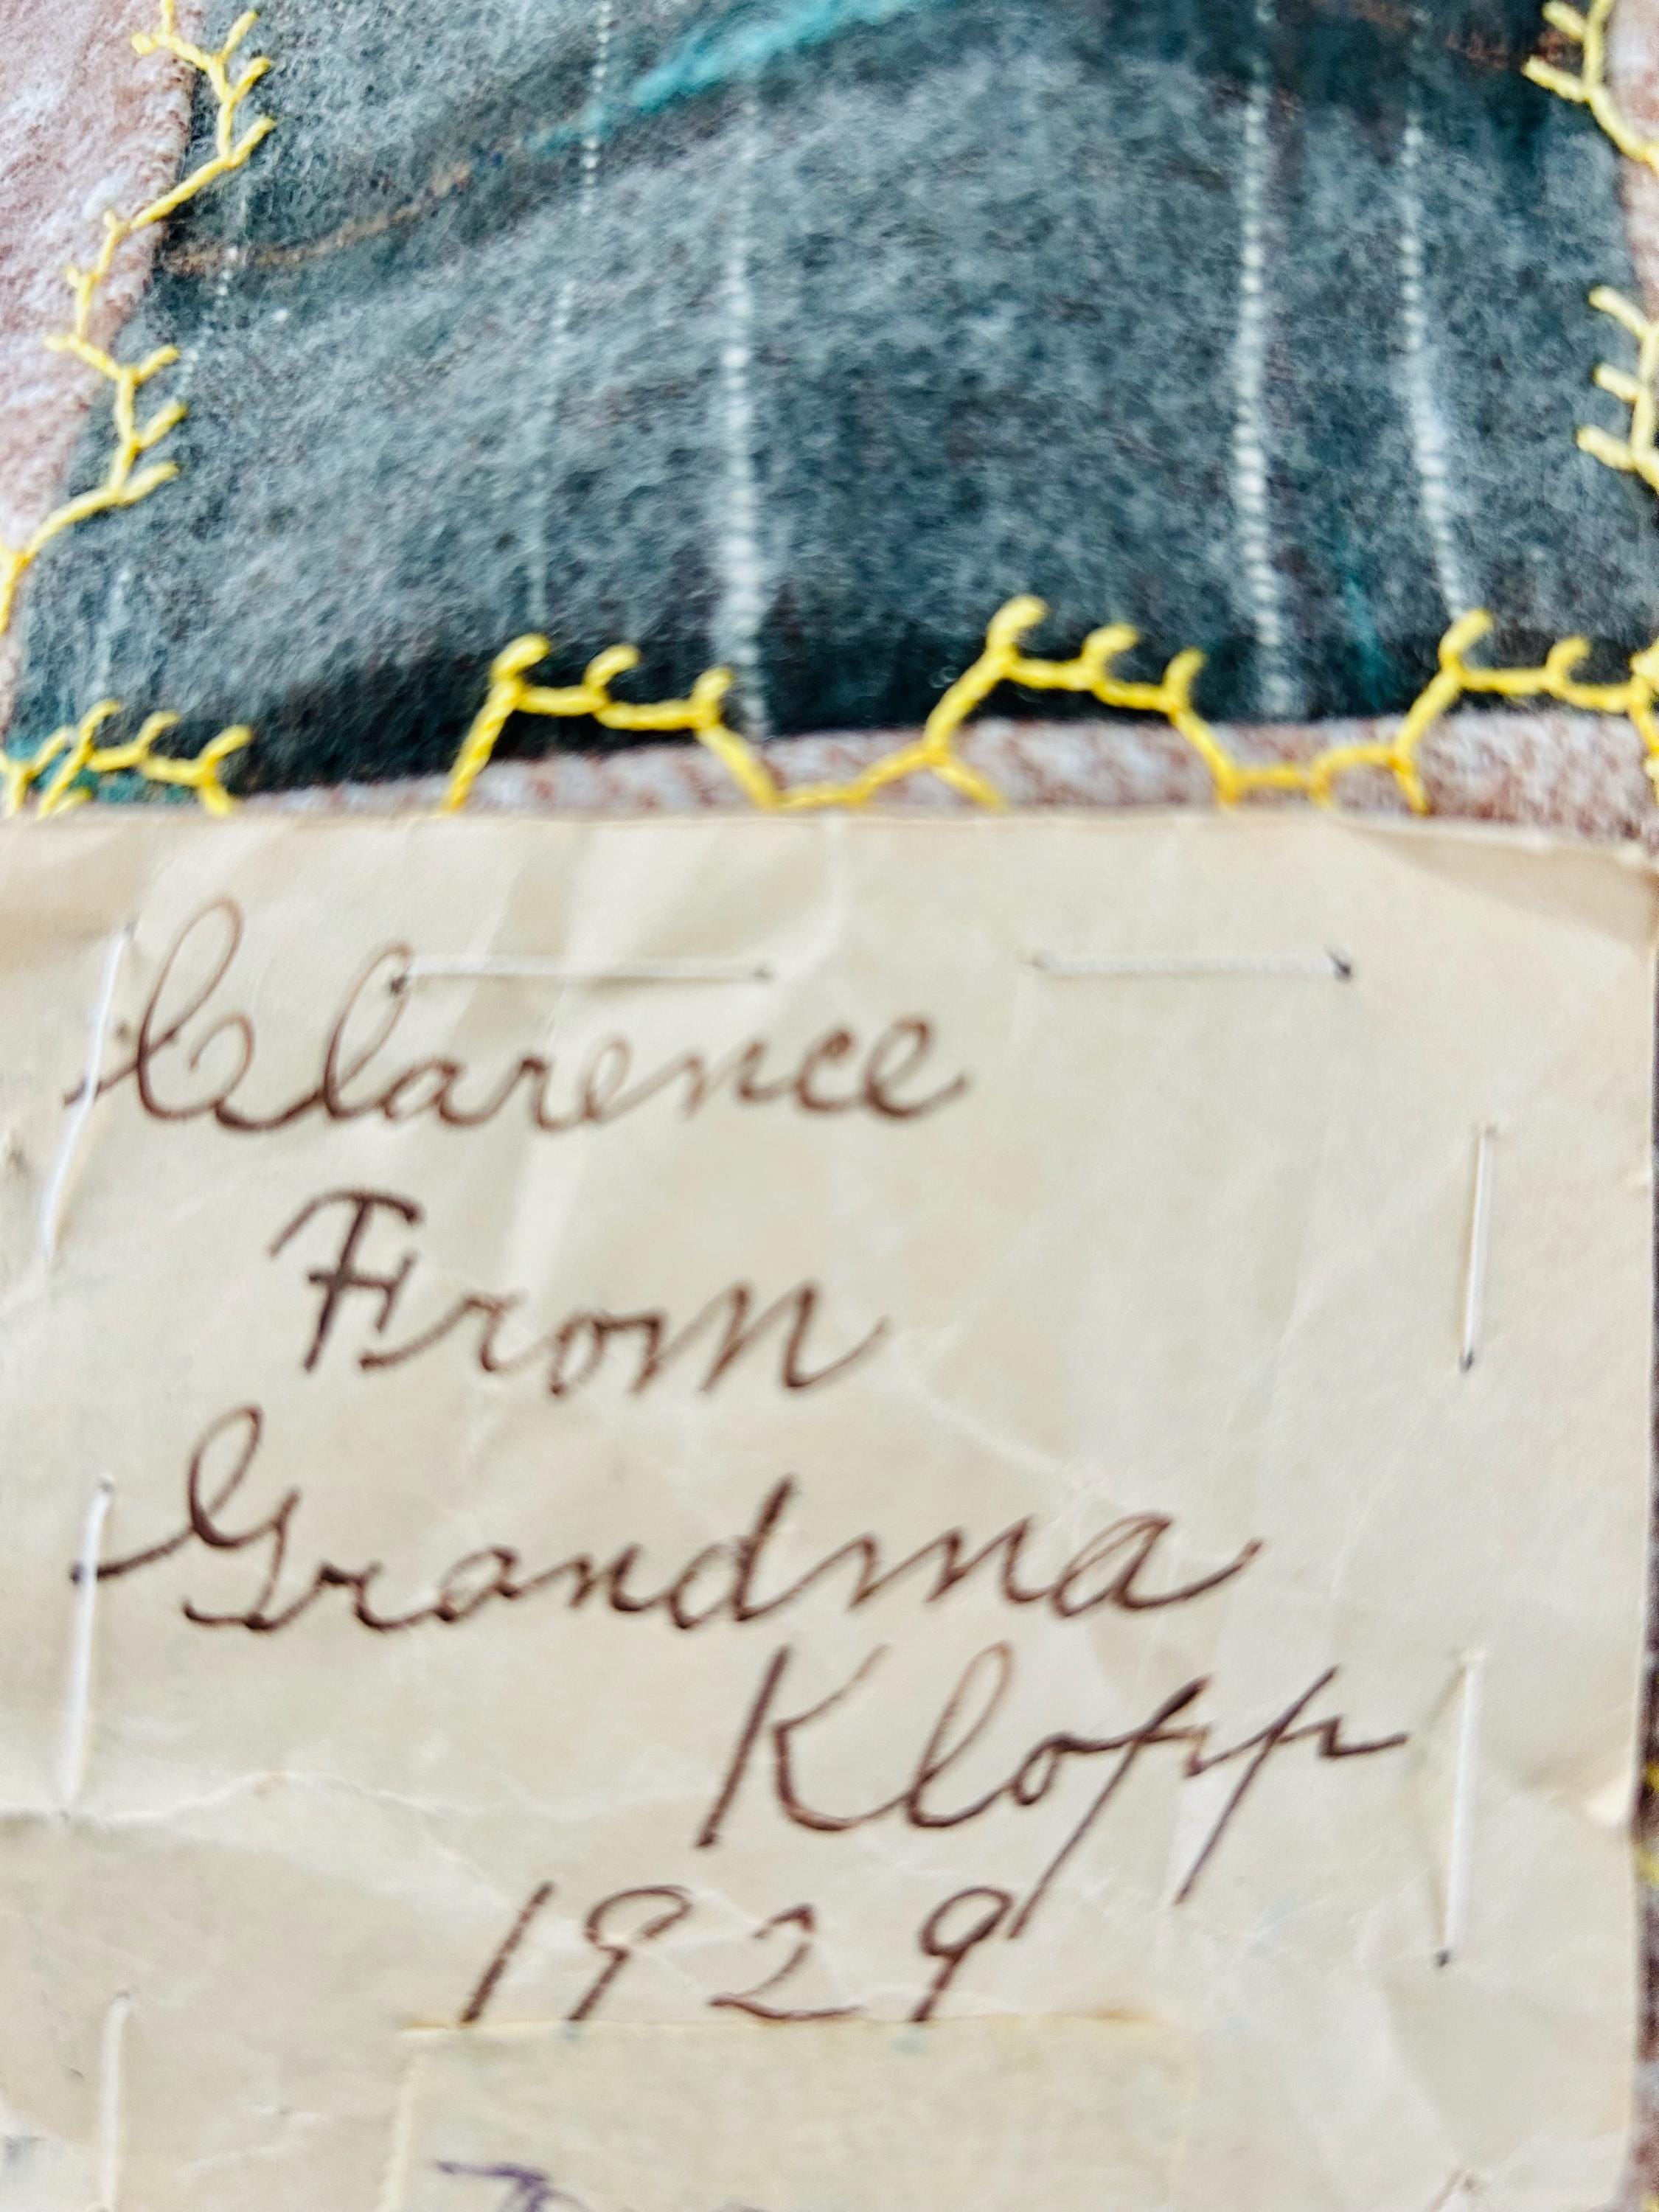 Clarence
From
Grandma
Klopp
1929